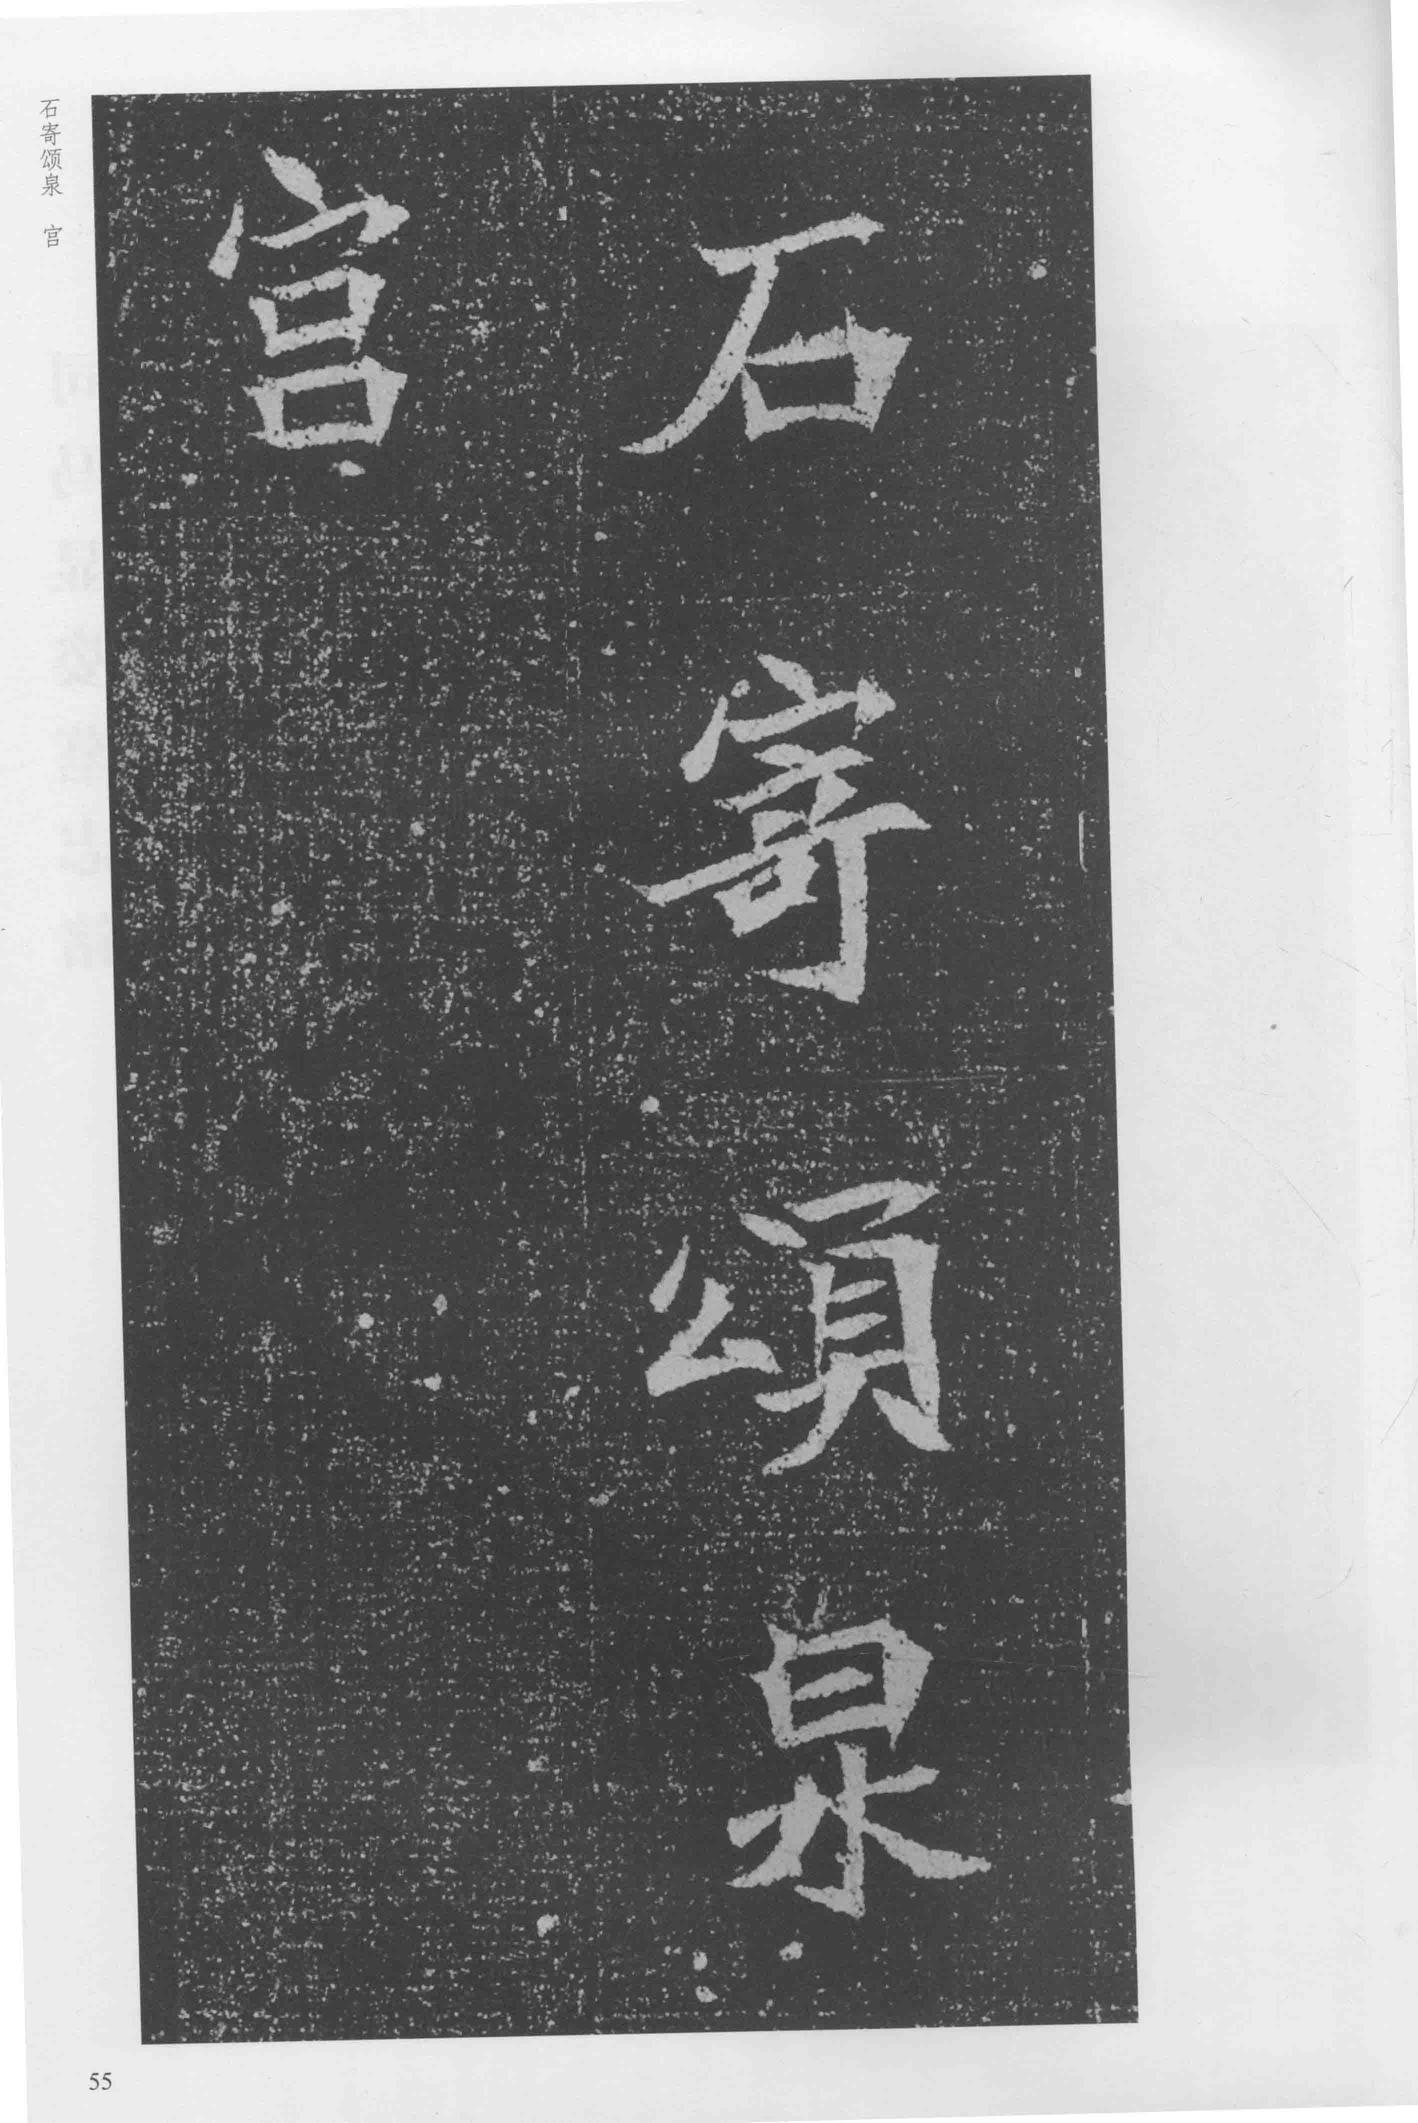 石寄頌泉
宫
石寄颂泉 宫
55